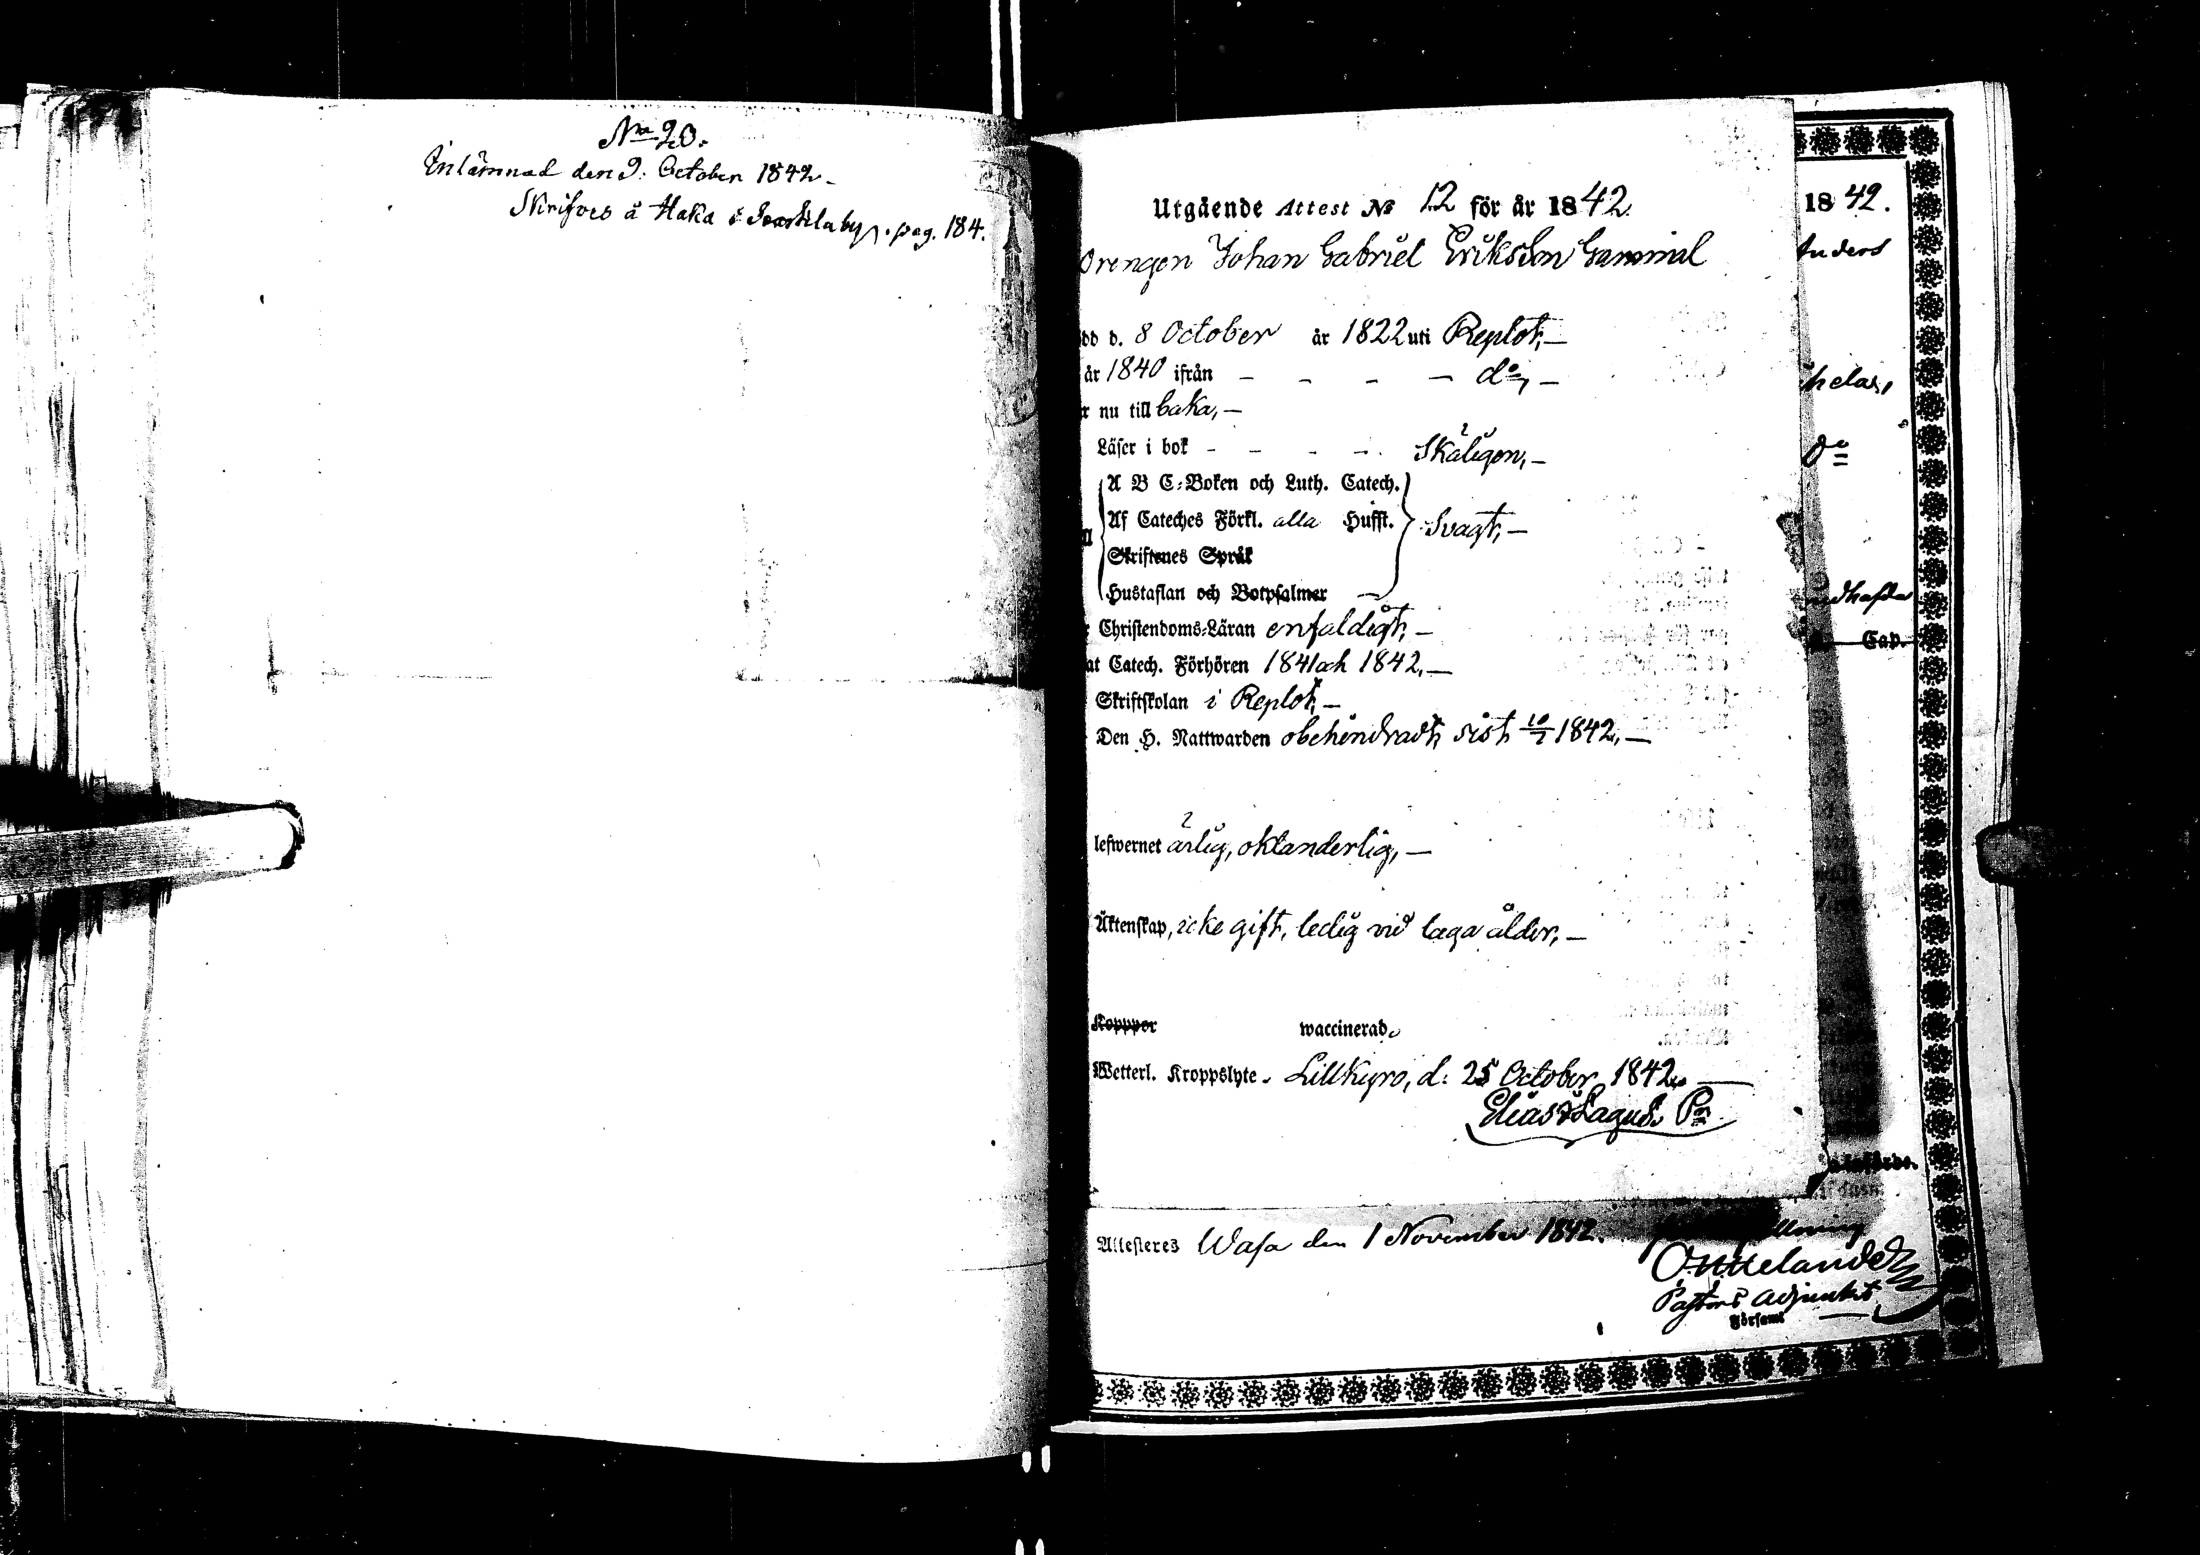 No 20.
Inlämnad den 9. October 1842.
Skrifves å Haka i by, pag. 184.
Utgående Attest No 12 för år 1842.
Drengen Johan Gabriel Eriksson Gammal
dd d. 8 October år 1822 uti Replot,—
år 1840 ifrån - - - — do, —
r nu till baka, —
Läser i bok - - - -. Skäligen, —
A B C-Boken och Luth. Catech.
Af Cateches Förkl. alla Hufst. Svagt, —
Skriftenes Språk
Hustaflan och Botpsalmer —
Christendoms-Läran enfaldigt, —
at Catech. Förhören 1841 och 1842, —
Skriftskolan i Replot, —
Den H. Nattwarden obehindradt, sist 10/7 1842, —
lefwernet ärlig, oklanderlig, —
Äktenskap, icke gift, ledig vid laga ålder, —
Kopppor waccinerad.
Wetterl. Kroppslyte. Lillkyro, d. 25 October 1842. —
Elias Lagus. Pr
1842.
Anders
do
Cap.
Attesteres Wasa den 1 November 1842.
Pastors Adjunkt
Församl